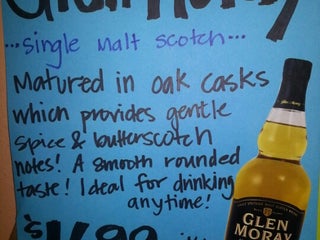 Glen Moray
...single malt scotch...
Matured in oak casks
which provides gentle
spice & butterscotch
notes! A smooth rounded
taste! Ideal for drinking
anytime!
GLEN
MORAY